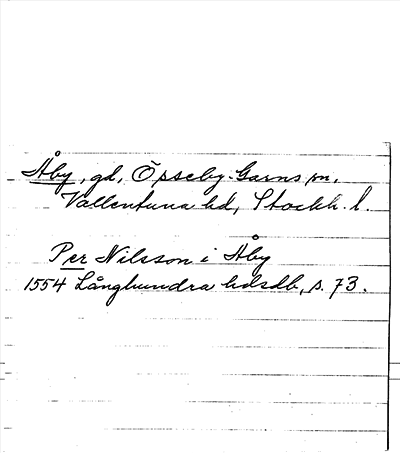 Åby, gd, Össeby-Garns sn,
Vallentuna hd, Stockh. l.
Per Nilsson i Åby
1554 Långhundra hdsdb, s. 73.